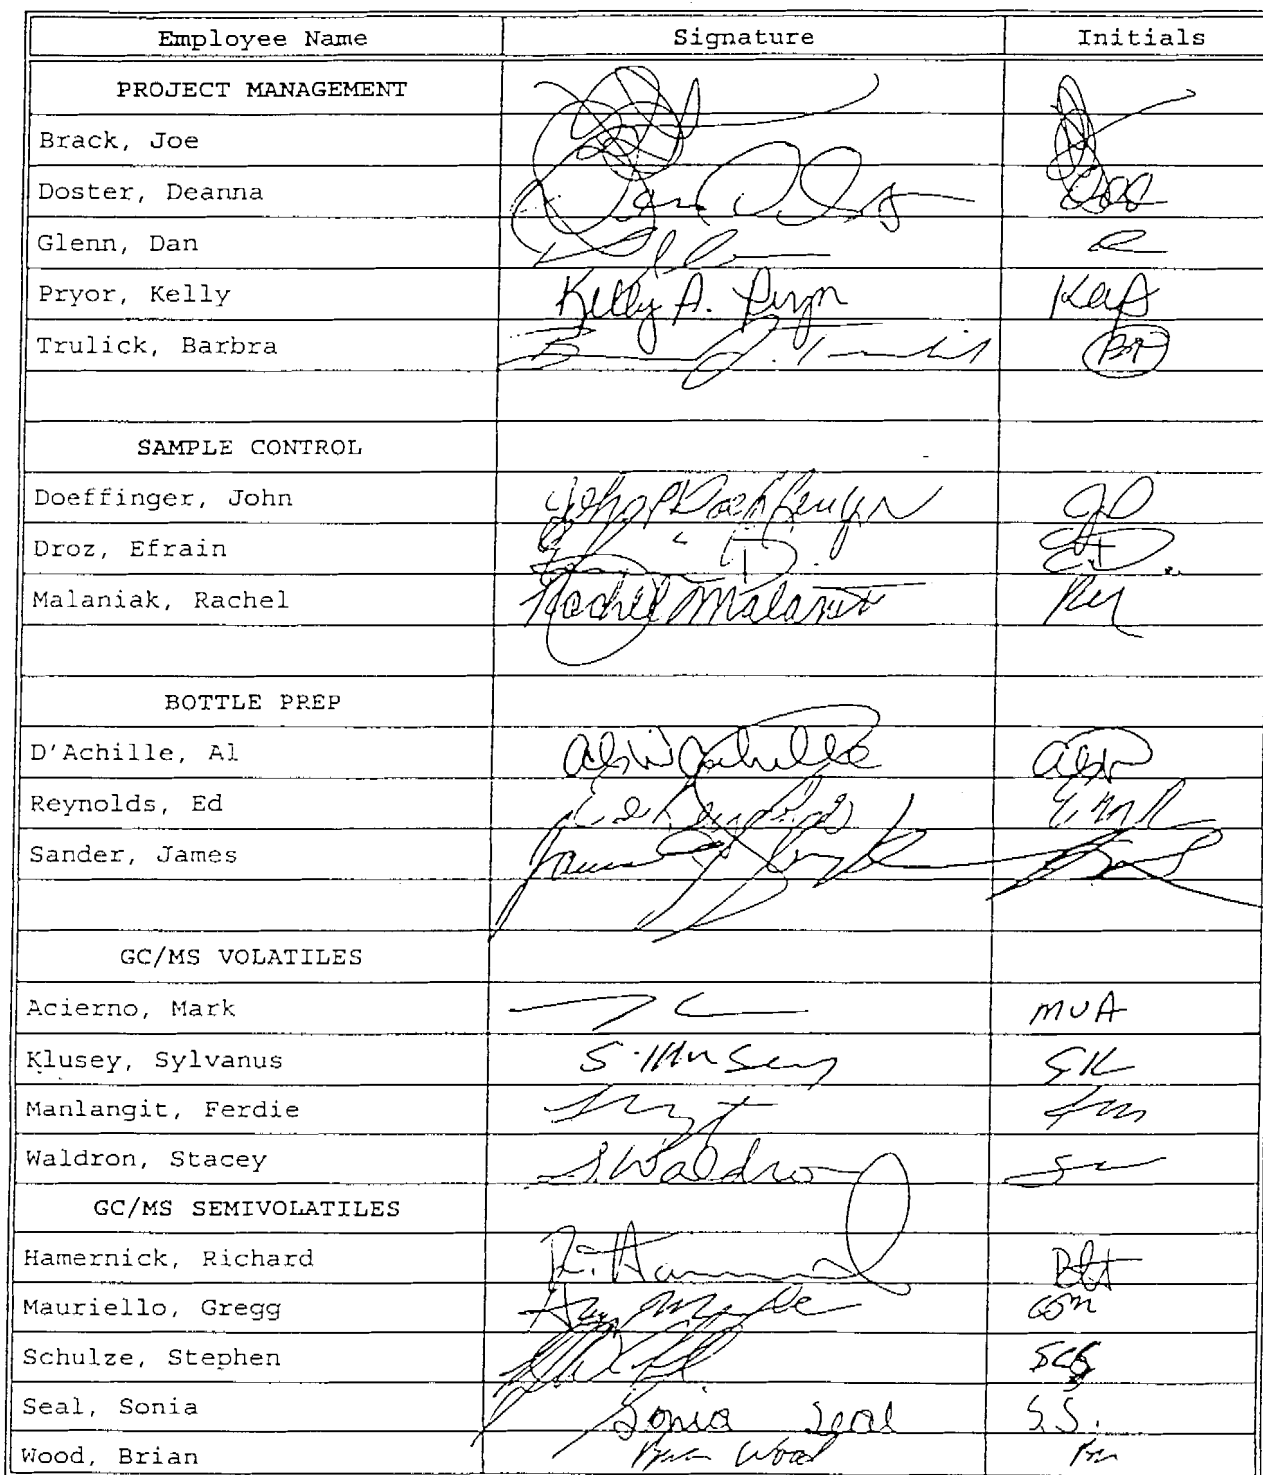 Employee Name Signature Initials
PROJECT MANAGEMENT
Brack, Joe
Doster, Deanna
Glenn, Dan
Pryor, Kelly Kelly A. Pryor KAP
Trulick, Barbra BAT
SAMPLE CONTROL
Doeffinger, John John P Doeffinger JD
Droz, Efrain E.D.
Malaniak, Rachel Rachel Malaniak RM
BOTTLE PREP
D'Achille, Al Al D'Achille
Reynolds, Ed Ed Reynolds
Sander, James James
GC/MS VOLATILES
Acierno, Mark MVA
Klusey, Sylvanus S. Klusey SK
Manlangit, Ferdie fm
Waldron, Stacey S. Waldron SW
GC/MS SEMIVOLATILES
Hamernick, Richard
Mauriello, Gregg GM
Schulze, Stephen SCS
Seal, Sonia Sonia Seal S.S.
Wood, Brian Brian Wood BW